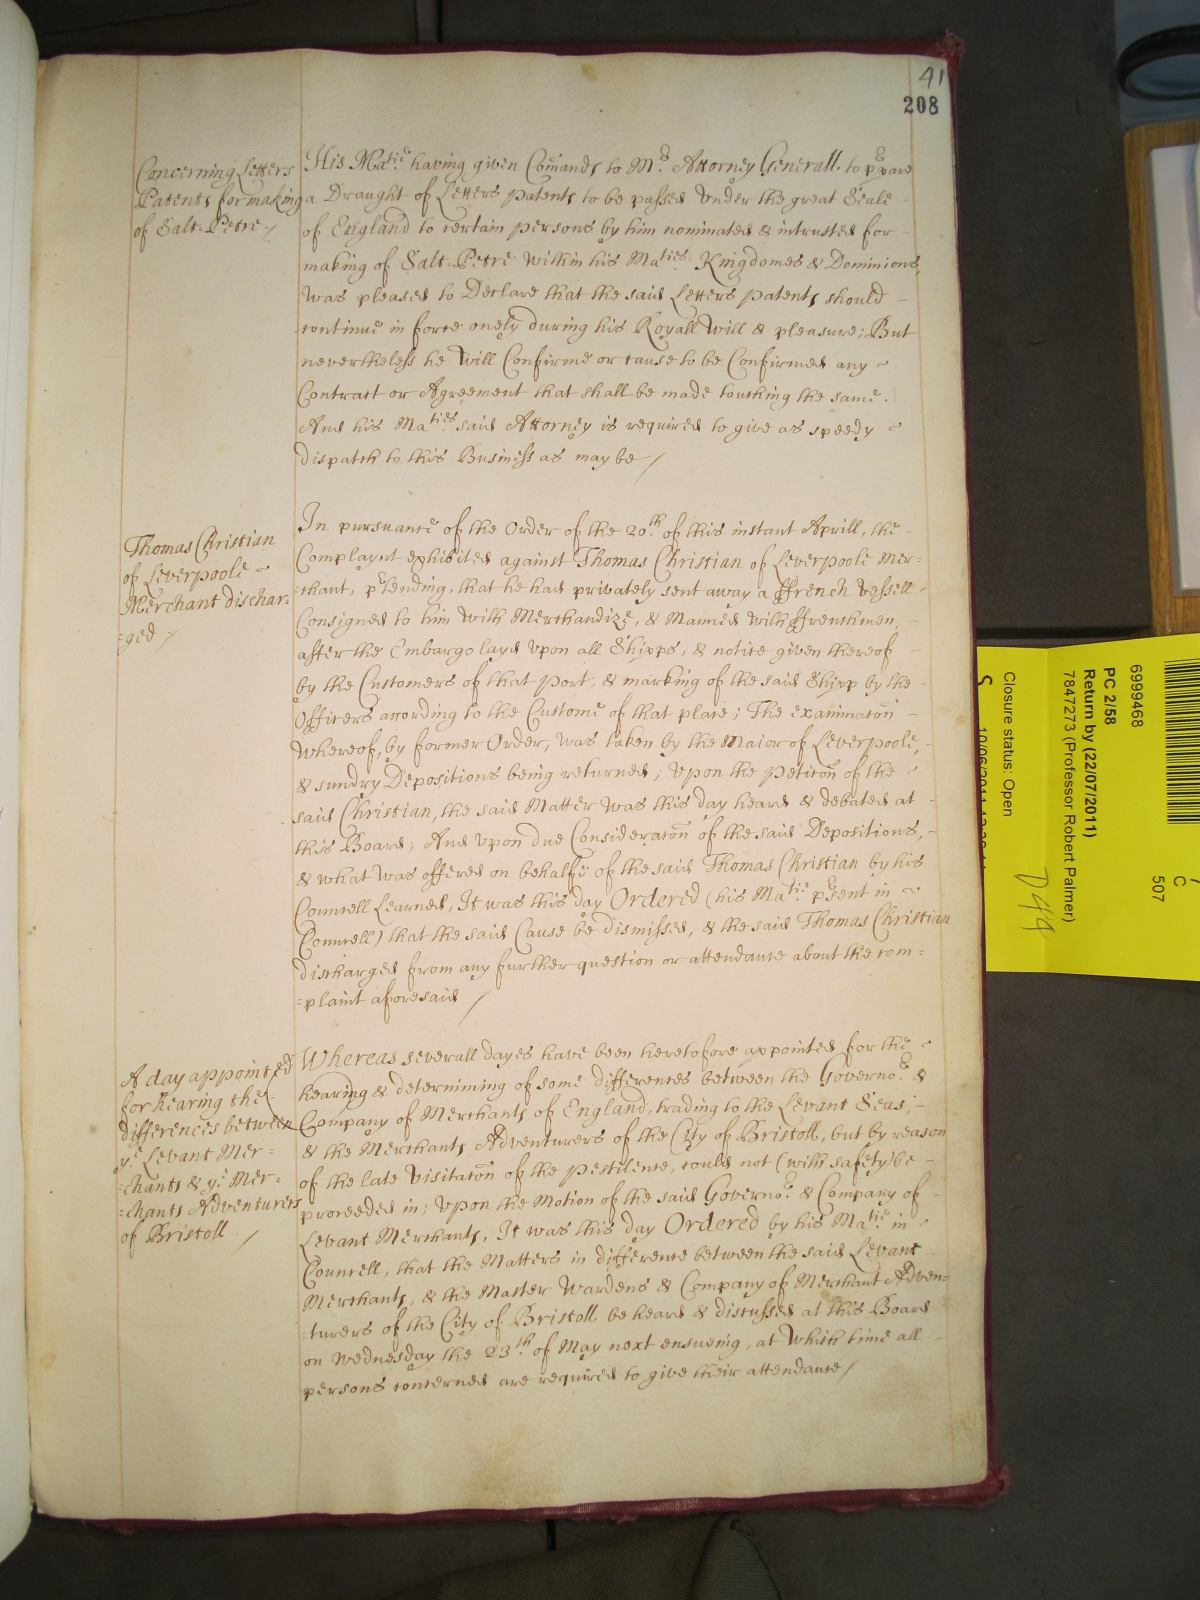 41
208
Concerning Letters
Patents for making
of Salt-Petre /
His Ma.tie having given Com̄ands to M.r Attorney Generall. to p.rpare
a Draught of Letters Patents to be passed Under the great Seale
of England to certain persons by him nominated & intrusted for
making of Salt-Petre within his Ma.ties Kingdomes & Dominions,
was pleased to Declare that the said Letters Patents should
continue in force onely during his Royall Will & pleasure; But
neverthelesse he Will Confirme or cause to be Confirmed any
Contract or Agreement that shall be made touching the same.
And his Ma.ties said Attorney is required to give as speedy
dispatch to this Business as may be /
Thomas Christian
of Leverpoole
Merchant dischar:
:ged /
In pursuance of the Order of the 20.th of this instant Aprill, the
Complaynt exhibited against Thomas Christian of Leverpoole Mer:
:chant, p.rtending, that he had privately sent away a ffrench vessell
Consigned to him with Merchandize, & Manned with ffrenchmen,
after the Embargo layd upon all Shipps, & notice given thereof
by the Customers of that Port, & marking of the said Shipp by the
Officers according to the Custome of that place; The examinacōn
whereof, by former Order, was taken by the Maior of Leverpoole,
& sundry Depositions being returned; Upon the Peticōn of the
said Christian, the said Matter was this day heard & debated at
this Board; And upon due Consideracōn of the said Depositions,
& what was offered on behalfe of the said Thomas Christian by his
Councell Learned, It was this day Ordered (his Ma.tie p.rsent in
Councell) that the said Cause be dismissed, & the said Thomas Christian
discharged from any further question or attendance about the com:
:plaint aforesaid /
A day appointed
for hearing the
differences between
y.e Levant Mer:
:chants & y.e Mer:
:chants Adventurers
of Bristoll /
Whereas severall dayes have been heretofore appointed for the
hearing & determining of some differences between the Governo.r &
Company of Merchants of England, trading to the Levant Seas,
& the Merchants Adventurers of the City of Bristoll, but by reason
of the late visitacōn of the Pestilence, could not (with safety) be
proceeded in; Upon the Motion of the said Governo.r & Company of
Levant Merchants, It was this day Ordered by his Ma.tie in
Councell, that the Matters in difference between the said Levant
Merchants, & the Master Wardens & Company of Merchant Adven:
:turers of the City of Bristoll be heard & discussed at this Board
on Wednesday the 23.th of May next ensueing, at which time all
persons concerned are required to give their attendance /
6999468
PC 2/58
Return by (22/07/2011)
7847273 (Professor Robert Palmer)
Closure status: Open
S
C
507